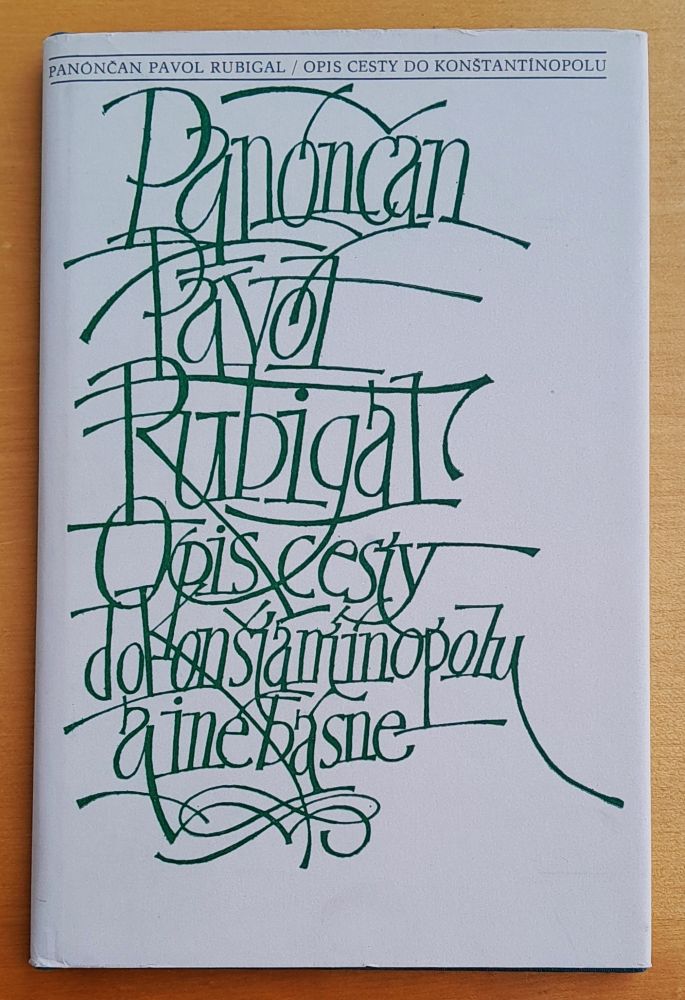 PANÓNČAN PAVOL RUBIGAL / OPIS CESTY DO KONŠTANTÍNOPOLU
Panónčan
Pavol
Rubigal
Opis cesty
do Konštantínopolu
a iné básne